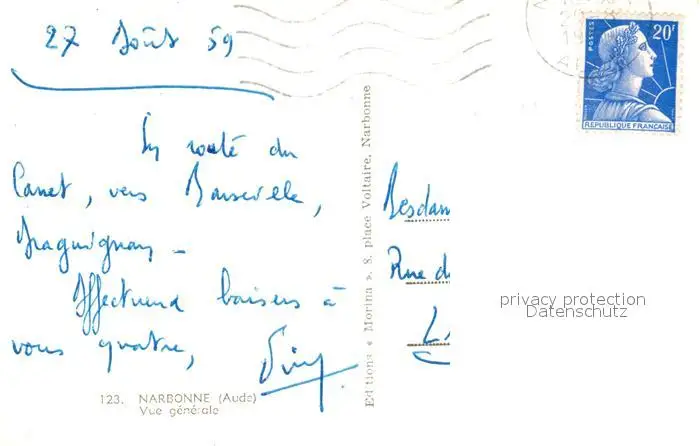 27 Août 59
En route du
Canet, vers Marseille,
Draguignan -
Affectueux baisers à
vous quatre,
123. NARBONNE (Aude)
Vue générale
Editions « Morina », 8, place Voltaire, Narbonne
POSTES
20F
REPUBLIQUE FRANÇAISE
Mesdam
Rue d
privacy protection
Datenschutz